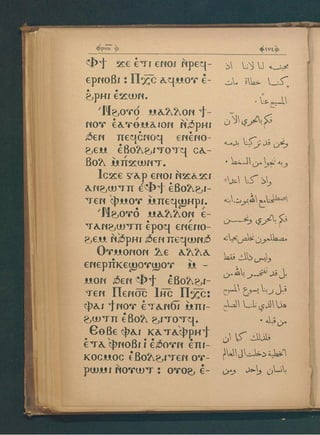 Ⲫϯ ϫⲉ ⲉ̇ⲧⲓ ⲉⲛⲟⲓ ⲛ̀ⲣⲉϥ-
ⲉⲣⲛⲟⲃⲓ : Ⲡⲭ̅ⲥ̅ ⲁϥⲙⲟⲩ ⲉ̀-
ϩⲣⲏⲓ ⲉϫⲱⲛ.
Ⲛ̀ϩⲟⲩⲟ̀ ⲙⲁⲗⲗⲟⲛ ϯ-
ⲛⲟⲩ ⲉ̀ⲁⲩⲑⲙⲁⲓⲟⲛ ⲛ̀ϩ̀ⲣⲏⲓ
ϧⲉⲛ ⲡⲉϥⲥ̀ⲛⲟϥ ⲉⲛⲉ̀ⲛⲟ-
ϩⲉⲙ ⲉ̇ⲃⲟⲗϩⲓⲧⲟⲧϥ ⲥⲁ-
ⲃⲟⲗ ⲙ̀ⲡϫⲱⲛⲧ.
Ⲓⲥϫⲉ ⲅⲁⲣ ⲉⲛⲟⲓ ⲛ̀ϫⲁϫⲓ
ⲁⲛϩⲱⲧⲡ ⲉ̀Ⲫϯ ⲉ̇ⲃⲟⲗϩⲓ-
ⲧⲉⲛ ⲫ̀ⲙⲟⲩ ⲙ̀ⲡⲉϥϣⲏⲣⲓ.
Ⲛ̀ϩⲟⲩⲟ̀ ⲙⲁⲗⲗⲟⲛ ⲉ-
ⲧⲁⲛϩⲱⲧⲡ ⲉⲣⲟϥ ⲉⲛⲉ̀ⲛⲟ-
ϩⲉⲙ ⲛ̀ϩ̀ⲣⲏⲓ ϧⲉⲛ ⲡⲉϥⲱⲛϧ
Ⲟⲩⲙⲟⲛⲟⲛ ⲇⲉ ⲁⲗⲗⲁ
ⲉⲛⲉⲣⲡⲕⲉϣⲟⲩϣⲟⲩ ⲙ̀-
ⲙⲟⲛ ϧⲉⲛ Ⲫϯ ⲉ̇ⲃⲟⲗϩⲓ-
ⲧⲉⲛ Ⲡⲉⲛⲟ̅ⲥ̅ Ⲓⲏ̅ⲥ̅ Ⲡⲭ̅ⲥ̅:
ⲫⲁⲓ ϯⲛⲟⲩ ⲉ̀ⲧⲁⲛϭⲓ ⲙ̀ⲡⲓ-
ϩⲱⲧⲡ ⲉ̀ⲃⲟⲗ ϩⲓⲧⲟⲧϥ.
Ⲉⲑⲃⲉ ⲫⲁⲓ ⲕⲁⲧⲁⲫ̀ⲣⲏϯ
ⲉ̀ⲧⲁ ⲫ̀ⲛⲟⲃⲓ ⲓ̀ ⲉ̀ϧⲟⲩⲛ ⲉ̀ⲡⲓ-
ⲕⲟⲥⲙⲟⲥ ⲉ̀ⲃⲟⲗϩⲓⲧⲉⲛ ⲟⲩ-
ⲣⲱⲙⲓ ⲛ̀ⲟⲩⲱⲧ : ⲟⲩⲟϩ ⲉ̀-
محبته لنا لاننا اذ
كنا خطاة مات
المسيح عنا .
فكم بالحري الآن
ونحن قد تزكينا بدمه
وبه نجوا من السخط .
واذ كنا اعداء
اصطلحنا مع الله بموت ابنه
فكم بالحري ونحن
مصطلحون نخلص بحياته
وليس ذلك فقط
بل قد نفتخر بالله من
قبل ربنا يسوع المسيح
هذا الذي نلنا الصلح
من قبله .
فلذلك كما ان
الخطية دخلت الى العالم
بانسان واحد ومن